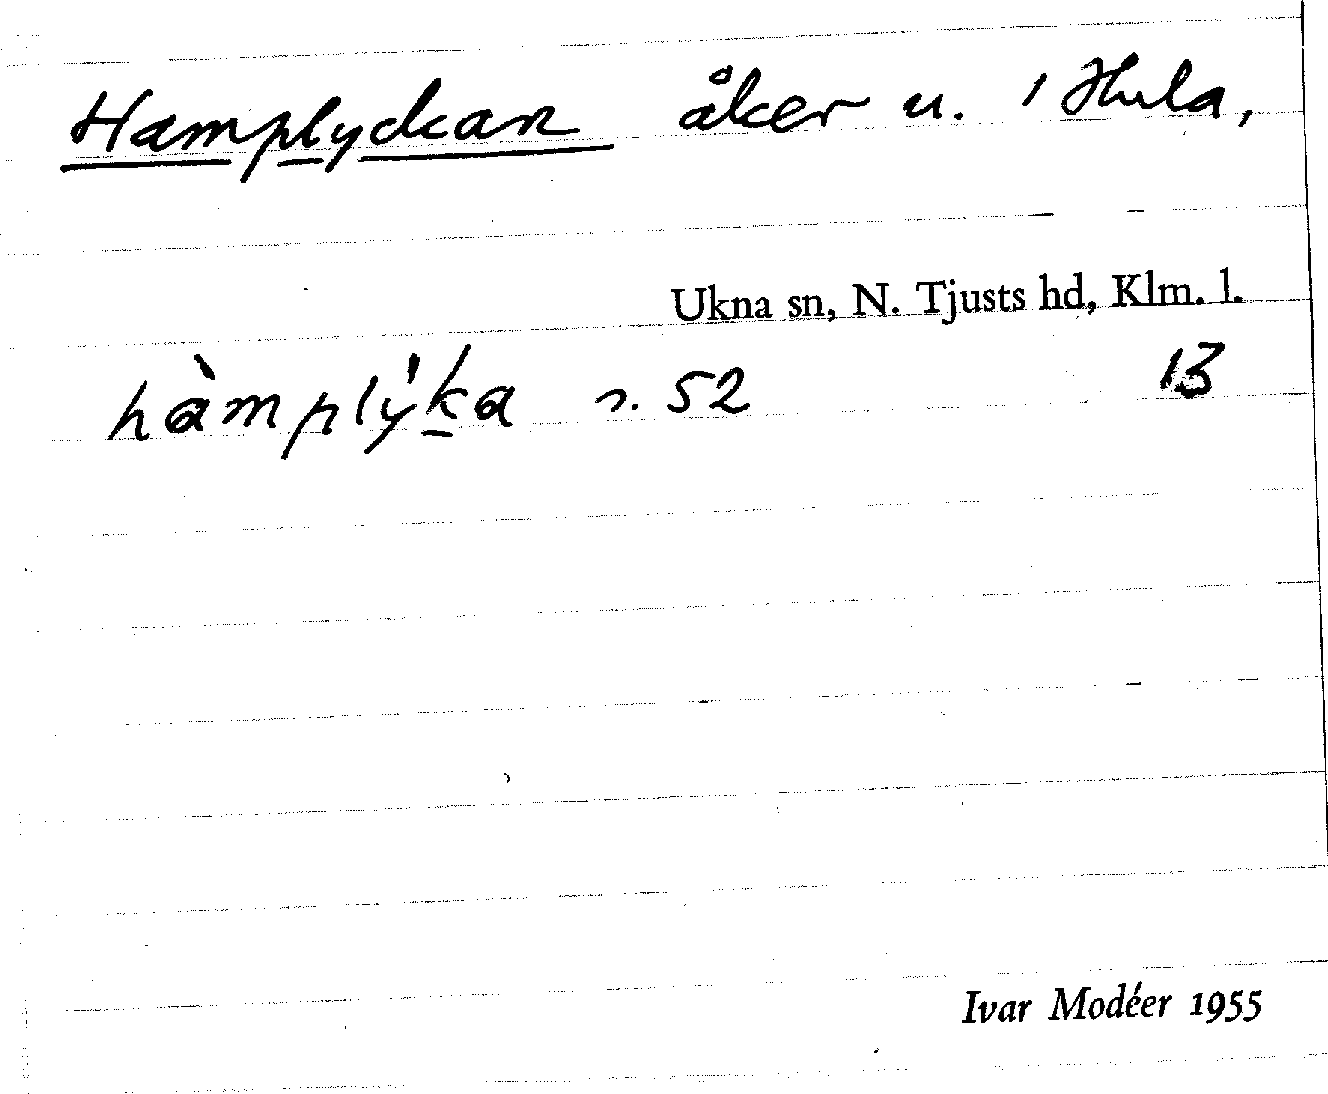 Hamplyckan åker u. 1 Hula,
Ukna sn, N. Tjusts hd, Klm. l.
hàmplýka s. 52 13
Ivar Modéer 1955